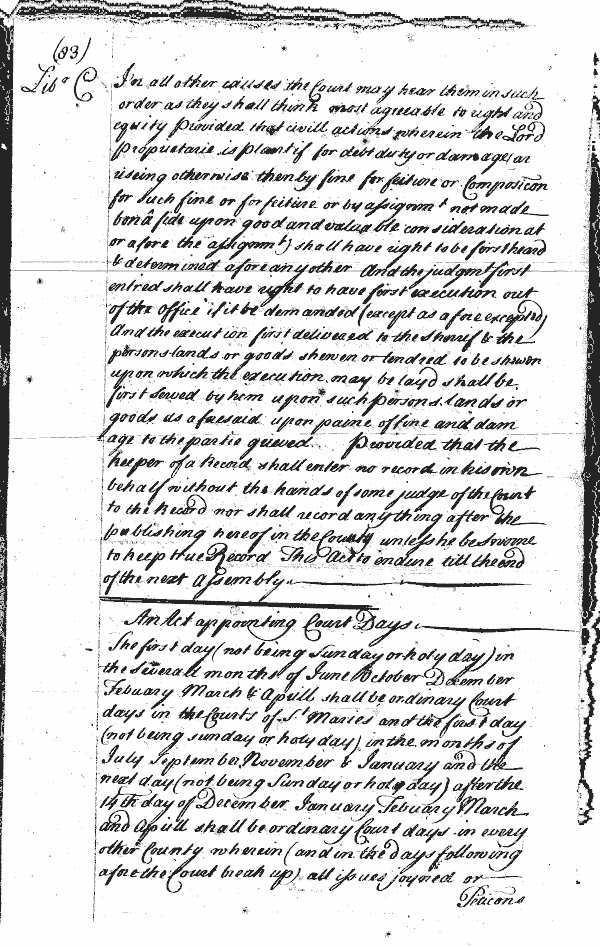 (83)
Libr C
In all other causes the Court may hear them in such
order as they shall think most agreeable to right and
equity Provided that civill actions wherein the Lord
Proprietarie is plantif for debt duty or damages (ar
iseing otherwise then by fine forfeiture or Composicon
for such fine or forfeiture or by assignmt not made
bonâ fide upon good and valuable consideration at
or afore the assignmt) shall have right to be first heard
& determined afore any other And the judgmt first
entred shall have right to have first execution out
of the Office if it be demanded (except as afore excepted)
And the execution first delivered to the sherriff & the
persons lands or goods shewen or tendred to be shewen
upon which the execution may be layd shall be
first served by him upon such persons lands or
goods as aforesaid upon paine of fine and dam
age to the partie grieved Provided that the
keeper of a Record shall enter no record in his own
behalf without the hands of some judge of the Court
to the Record nor shall record any thing after the
publishing hereof in the County unless he be sworne
to keep true Record This Act to endure till the end
of the next Assembly
An Act appointing Court Days
The first day (not being Sunday or holy day) in
the severall months of June October December
Febuary March & Aprill shall be ordinary Court
days in the Courts of St Maries and the first day
(not being sunday or holy day) in the months of
July September November & January and the
next day (not being Sunday or holy day) after the
14th day of December January Febuary March
and Aprill shall be ordinary Court days in every
other County wherein (and in the days following
afore the Court break up) all issues joyned or
Peticons